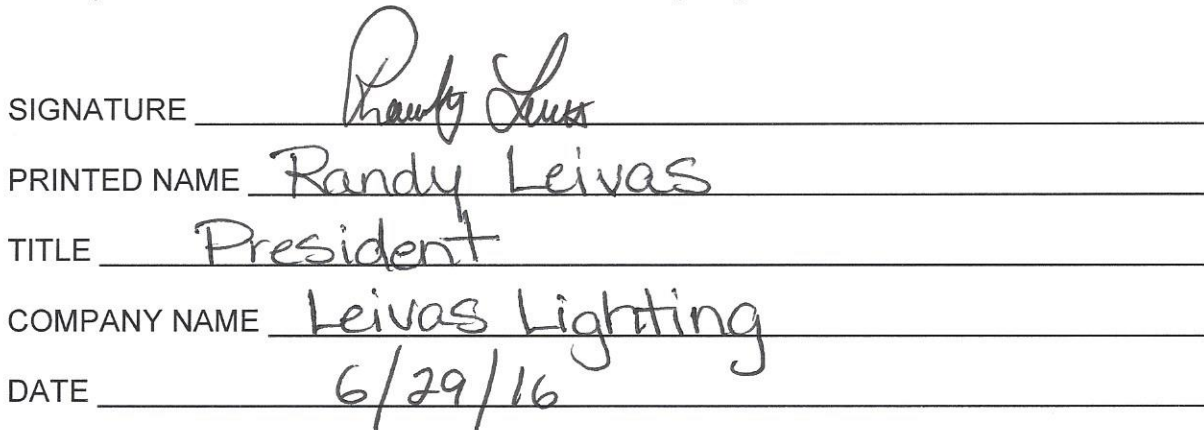 SIGNATURE Randy Leivas
PRINTED NAME Randy Leivas
TITLE President
COMPANY NAME Leivas Lighting
DATE 6/29/16